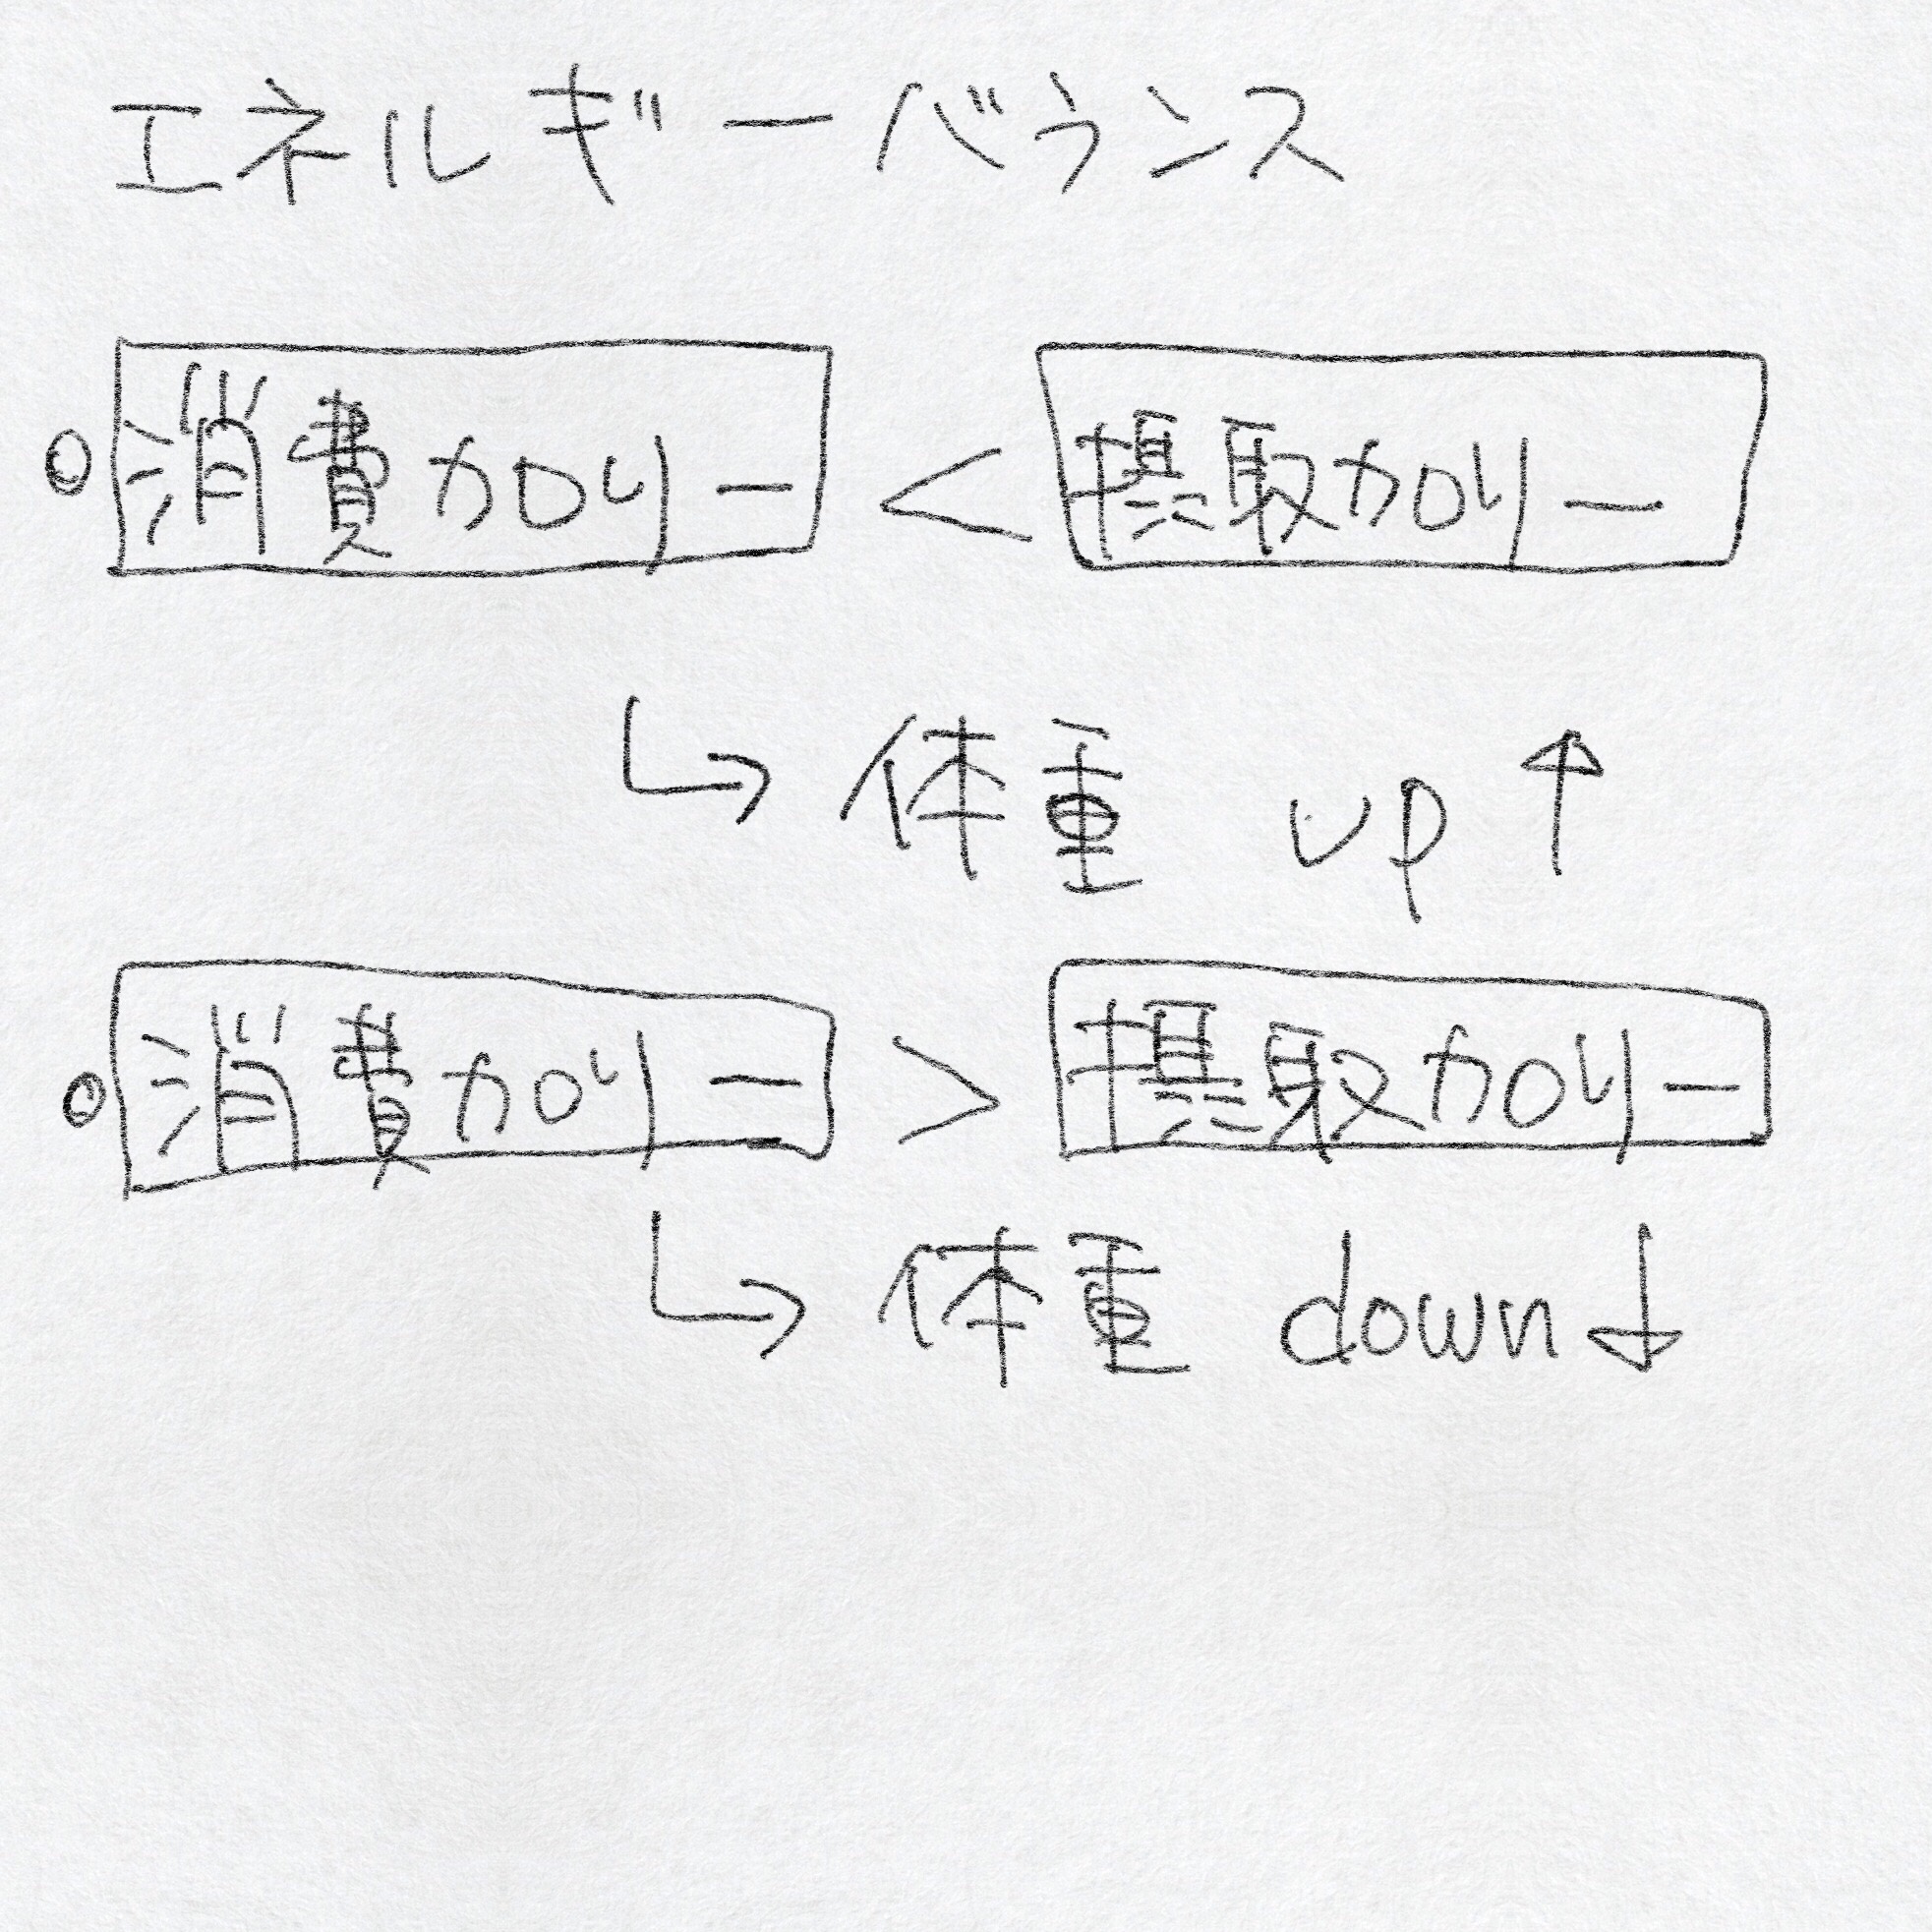 エネルギーバランス
消費カロリー < 摂取カロリー
↳ 体重 up ↑
消費カロリー > 摂取カロリー
↳ 体重 down ↓